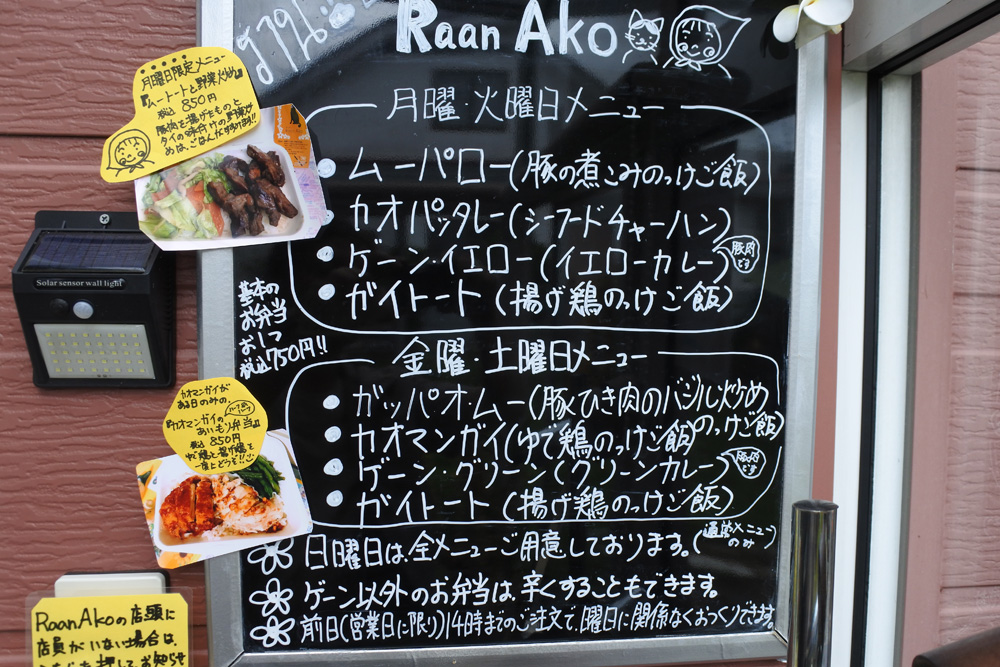 ร้าน
Raan Ako
月曜日限定メニュー
『ムートートと野菜炒め』
税込 850円
豚肉を揚げたものと
タイの味付けの野菜炒
めは、ごはんがすすみます!!
月曜・火曜日メニュー
ムーパロー(豚の煮こみのっけご飯)
カオパッタレー(シーフードチャーハン)
ゲーン・イエロー(イエローカレー)
豚肉です
ガイトート(揚げ鶏のっけご飯)
Solar sensor wall light
基本の
お弁当
おしつ
税込750円!!
金曜・土曜日メニュー
ガッパオ・ムー(豚ひき肉のバジル炒め
のっけご飯)
カオマンガイ(ゆで鶏のっけご飯)
ゲーン・グリーン(グリーンカレー)
豚肉です
ガイトート(揚げ鶏のっけご飯)
カオマンガイが
ある日のみの、
『カオマンガイの
あいもり弁当』
税込 850円
ゆで鶏と揚げ鶏を
一度にどうぞ!!
日曜日は、全メニューご用意しております。(通常メニューのみ)
ゲーン以外のお弁当は、辛くすることもできます。
前日(営業日に限り)14時までのご注文で、曜日に関係なくおつくりできます。
RaanAkoの店頭に
店員がいない場合は、
押してお知らせ